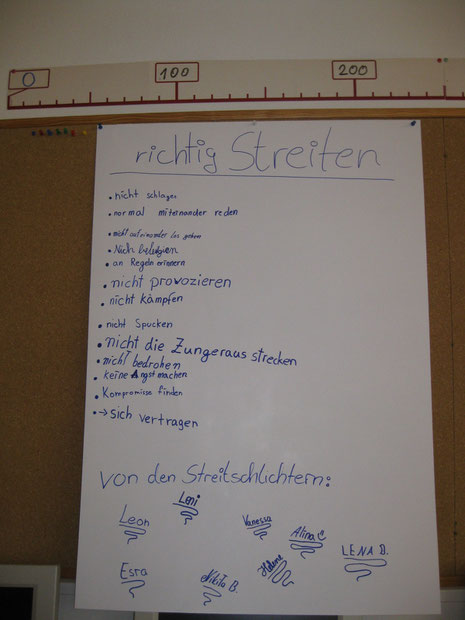 0 100 200
richtig Streiten
• nicht schlagen
• normal miteinander reden
• nicht aufeinander los gehen
• Nich beleidigen
• an Regeln erinnern
• nicht provozieren
• nicht kämpfen
• nicht Spucken
• nicht die Zungeraus strecken
• nicht bedrohen
• keine Angst machen
• Kompromisse finden
• → sich vertragen
von den Streitschlichtern:
Leon Leni Vanessa Alina LENA B.
Esra Nikita B. Helene